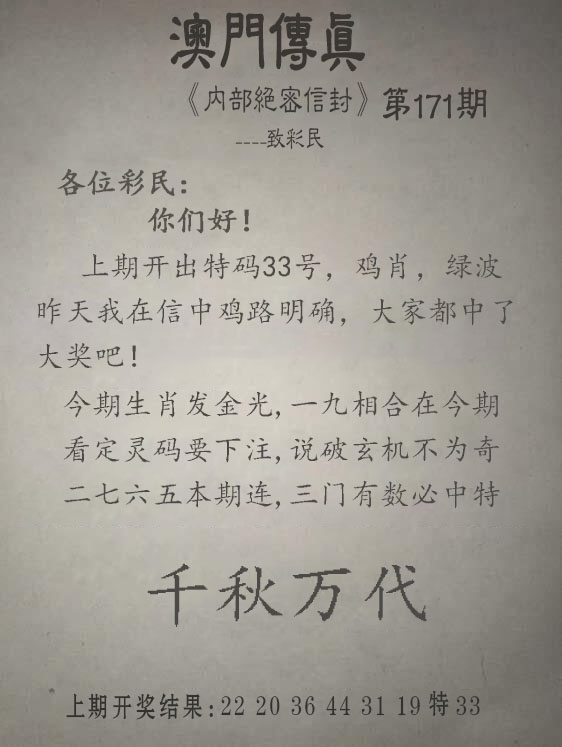 澳門傳眞
《内部絕密信封》第171期
----致彩民
各位彩民:
你们好!
上期开出特码33号，鸡肖，绿波
昨天我在信中鸡路明确，大家都中了
大奖吧!
今期生肖发金光,一九相合在今期
看定灵码要下注,说破玄机不为奇
二七六五本期连,三门有数必中特
千秋万代
上期开奖结果:22 20 36 44 31 19 特 33